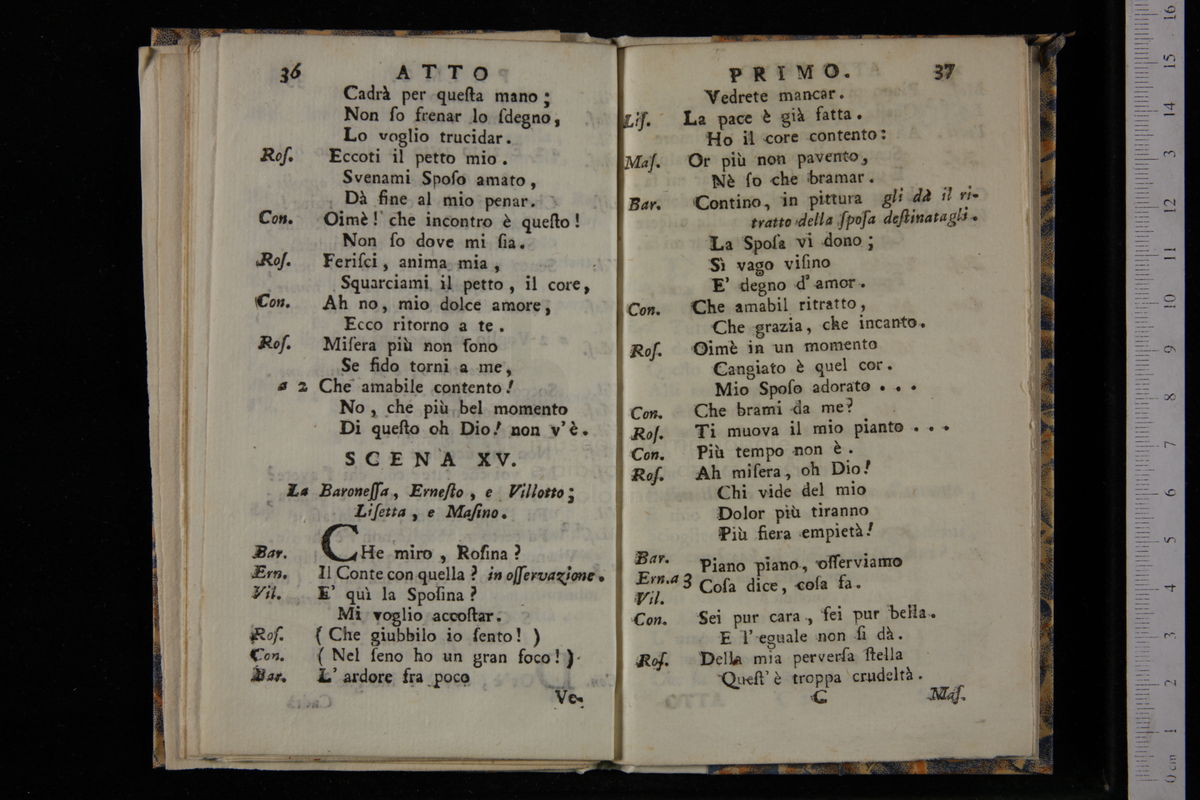 36 ATTO
Cadrà per queſta mano;
Non ſo frenar lo ſdegno,
Lo voglio trucidar.
Roſ. Eccoti il petto mio.
Svenami Spoſo amato,
Dà fine al mio penar.
Con. Oimè! che incontro è queſto!
Non ſo dove mi ſia.
Roſ. Feriſci, anima mia,
Squarciami il petto, il core,
Con. Ah no, mio dolce amore,
Ecco ritorno a te.
Roſ. Miſera più non ſono
Se fido torni a me,
a 2 Che amabile contento!
No, che più bel momento
Di queſto oh Dio! non v'è.
SCENA XV.
La Baroneſſa, Erneſto, e Villotto;
Liſetta, e Maſino.
Bar. CHe miro, Roſina?
Ern. Il Conte con quella? in oſſervazione.
Vil. E' quì la Spoſina?
Mi voglio accoſtar.
Roſ. (Che giubbilo io ſento!)
Con. (Nel ſeno ho un gran foco!)
Bar. L'ardore fra poco
Ve-
PRIMO. 37
Vedrete mancar.
Liſ. La pace è già fatta.
Ho il core contento:
Maſ. Or più non pavento,
Nè ſo che bramar.
Bar. Contino, in pittura gli dà il ri-
tratto della ſpoſa deſtinatagli.
La Spoſa vi dono;
Sì vago viſino
E' degno d'amor.
Con. Che amabil ritratto,
Che grazia, che incanto.
Roſ. Oimè in un momento
Cangiato è quel cor.
Mio Spoſo adorato...
Con. Che brami da me?
Roſ. Ti muova il mio pianto...
Con. Più tempo non è.
Roſ. Ah miſera, oh Dio!
Chi vide del mio
Dolor più tiranno
Più fiera empietà!
Bar. Piano piano, oſſerviamo
Ern. a 3 Coſa dice, coſa fa.
Vil.
Con. Sei pur cara, ſei pur bella.
E l'eguale non ſi dà.
Roſ. Della mia perverſa ſtella
Queſt'è troppa crudeltà.
C Maſ.
0 cm 1 2 3 4 5 6 7 8 9 10 11 12 13 14 15 16